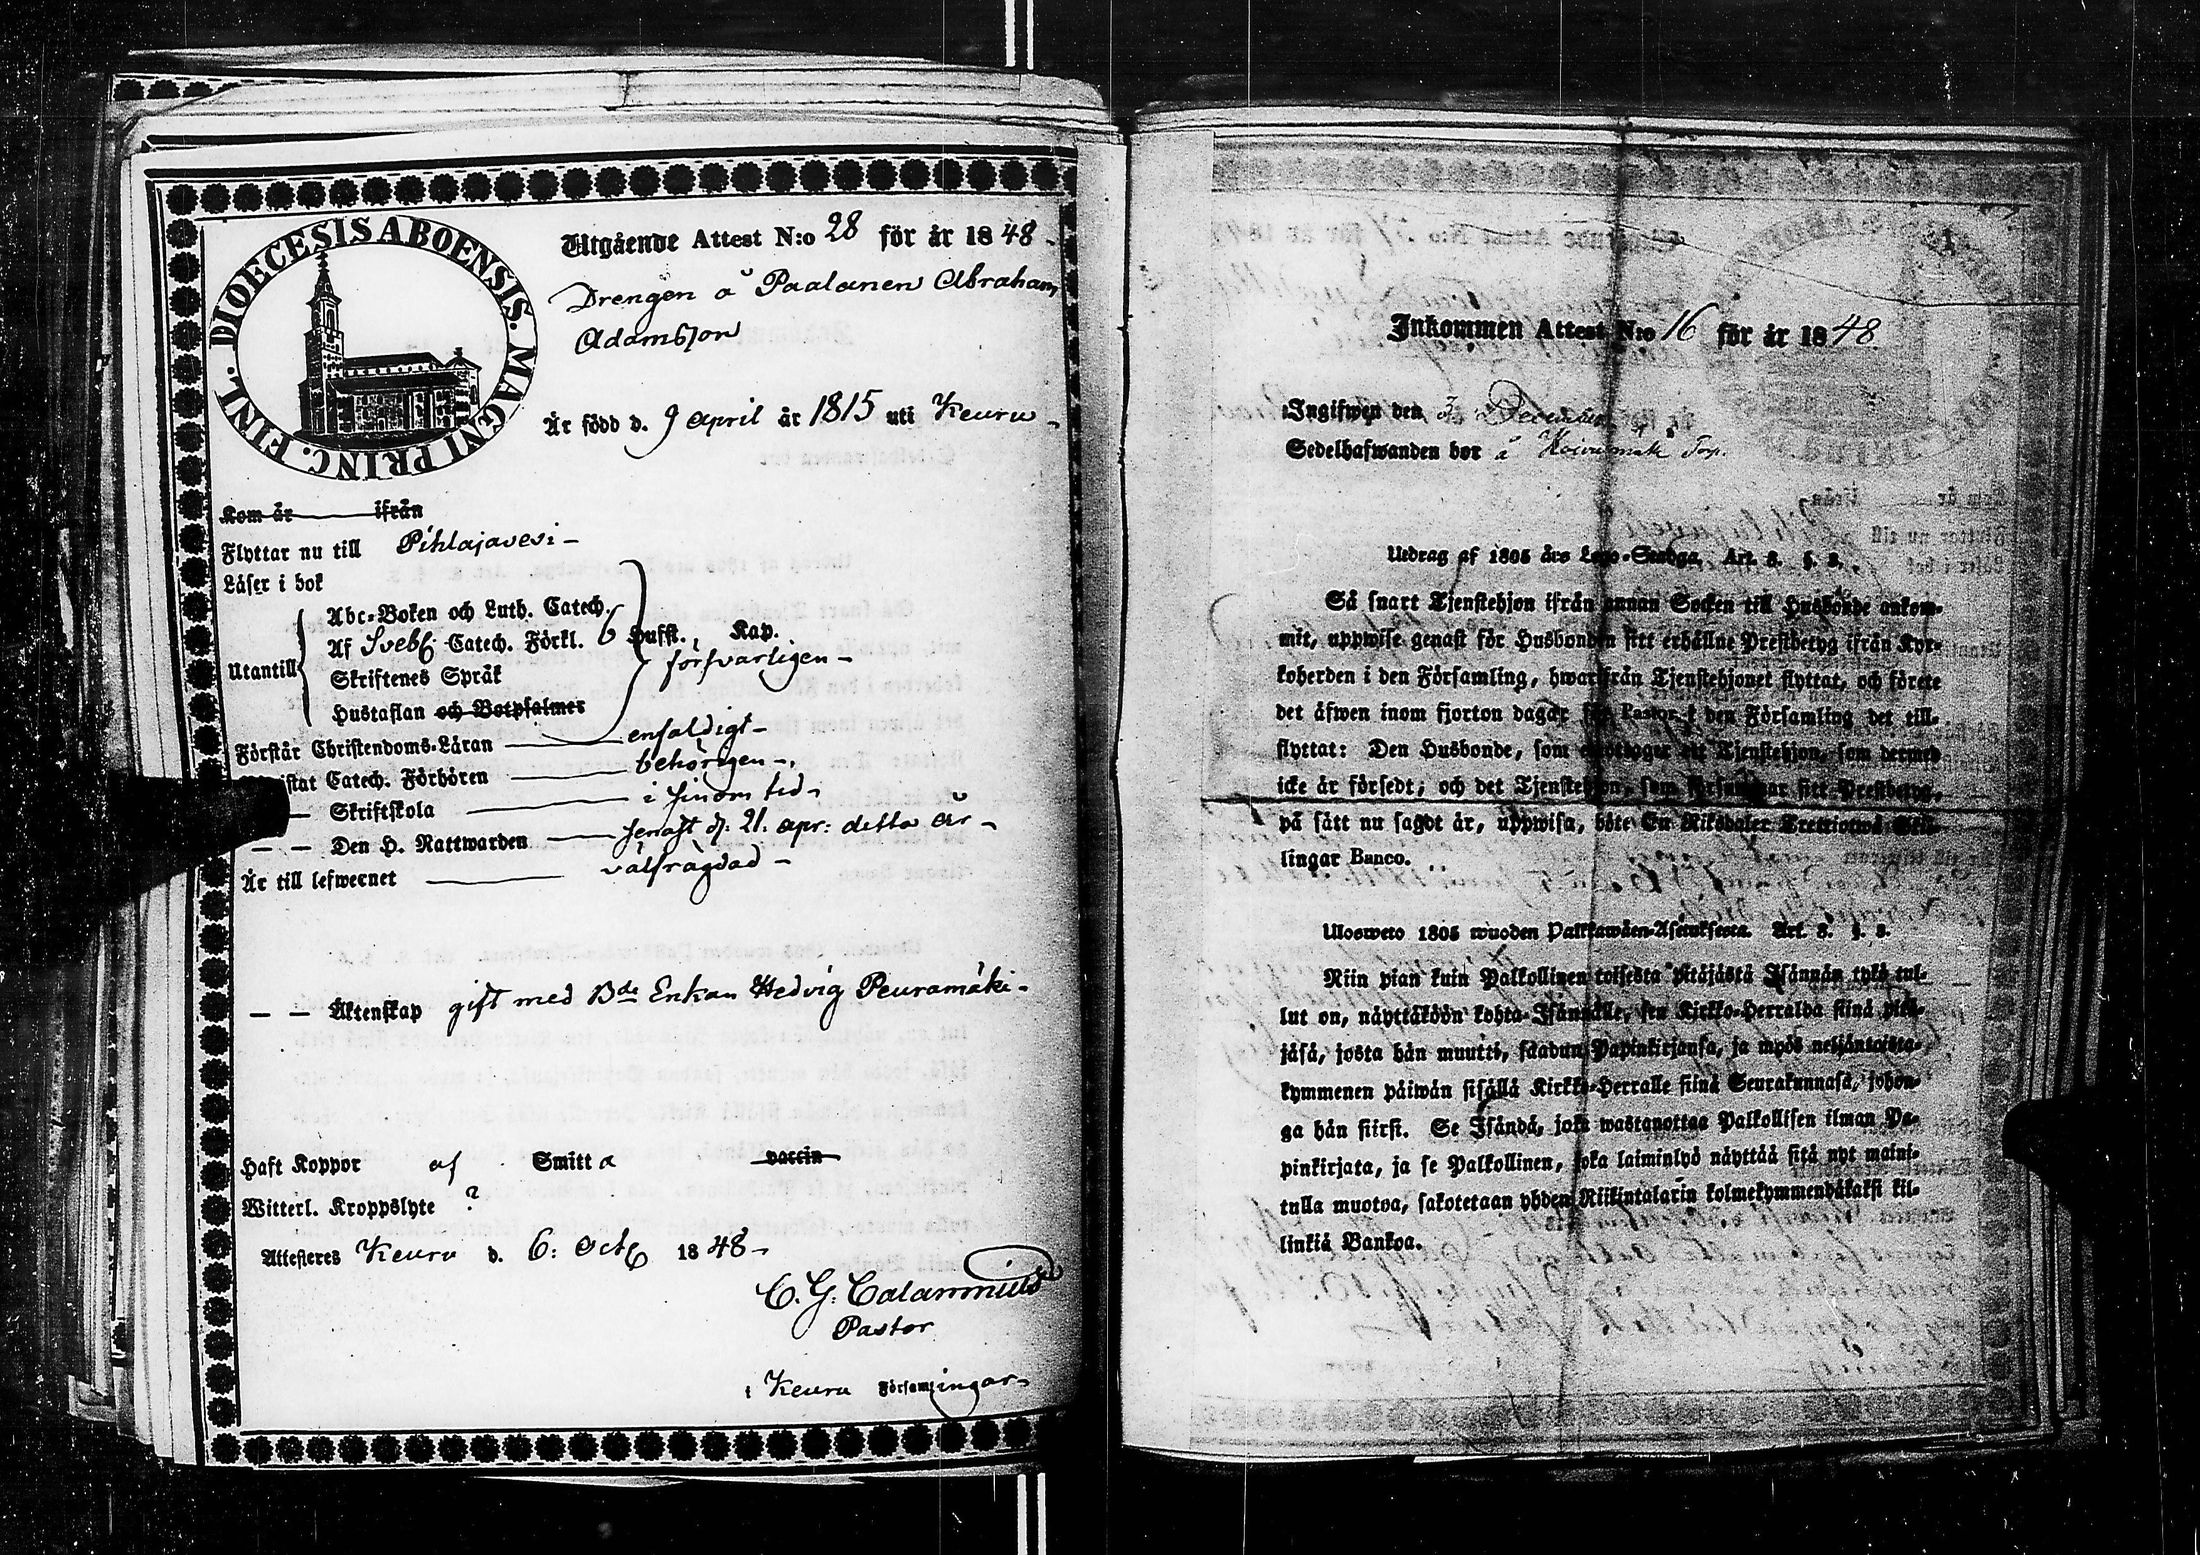 DIOECESIS ABOENSIS. MAGNI PRINC. FINL.
Utgående Attest N:o 28 för år 1848 -
Drengen å Paalanen Abraham
Adamsson
Är född d. 9 april år 1815 uti Keuru -
Kom år ifrån
Flyttar nu till Pihlajavesi -
Läser i bok
Utantill
Abc-Boken och Luth. Catech.
Af Sveb. Catech. Förkl. 6 Hufst., Kap.
försvarligen -
Skriftenes Språk
Hustaflan och Botpsalmer
Förstår Christendoms-Läran enfaldigt -
Catech. Förhören behörigen -
— Skriftskola i sinom tid -
— — Den H. Nattwarden senast d. 21. apr: detta år -
Är till lefwernet välfrägdad -
— — Äktenskap gift med Bde Enkan Hedvig Peuramäki -
Haft Koppor af Smitta vaccin
Witterl. Kroppslyte ?
Attesteres Keuru d. 6: Octb 1848 -
C. G. Calamnius
Pastor
i Keuru Församlingar -
Inkommen Attest N:o 16 för år 1848
Ingifwen den 3 December
Sedelhafwanden bor å Koivumäki Torp.
Utdrag af 1805 års Lego-Stadga, Art. 3. §. 3.
Så snart Tjenstehjon ifrån annan Socken till Husbonde ankom-
mit, uppwise genast för Husbonden sitt erhållne Prestbetyg ifrån Kyr-
koherden i den Församling, hwarifrån Tjenstehjonet flyttat, och förete
det äfwen inom fjorton dagar för Pastor i den Församling det till-
flyttat: Den Husbonde, som emottager ett Tjenstehjon, som dermed
icke är försedt; och det Tjenstehjon, som försummar sitt Prestbetyg,
på sätt nu sagdt är, uppwisa, böte En Riksdaler Trettiotwå Skil-
lingar Banco.
Uloswето 1805 wuoden Palkkawäen-Asetuksesta. Art. 3. §. 3.
Niin pian kuin Palkollinen toisesta pitäjästä Isännän tykö tul-
lut on, näyttäköön kohta Isännälle, sen Kirkko-Herralda siinä pitä-
jäsä, josta hän muutti, saadun Papinkirjansa, ja myös neljäntoista-
kymmenen päiwän sisällä Kirkko-Herralle siinä Seurakunnasa, johon-
ga hän siirsi. Se Isändä, joka wastanottaa Palkollisen ilman Pa-
pinkirjata, ja se Palkollinen, joka laiminlyö näyttää sitä nyt maini-
tulla muotoa, sakotetaan yhden Riikintalarin kolmekymmendäkaksi kil-
linkiä Bankoa.